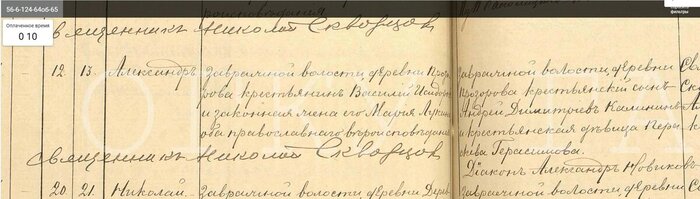 56-6-124-64об-65
Оплаченное время
0 10
фильтры
вероисповѣданія
Священникъ Николай Скворцовъ
12. 13. Александръ Завражной волости, деревни Прозорова крестьянинъ Василій
и законная жена его Марія Лукинова православнаго вѣроисповѣданія
Завражной волости деревни
Прозорова крестьянскій сынъ
Андрей Димитріевъ Калининъ
и крестьянская дѣвица
Герасимова.
Священникъ Николай Скворцовъ
Діаконъ Александръ Новиковъ
20. 21. Николай Завражной волости, деревни
Завражной волости, деревни